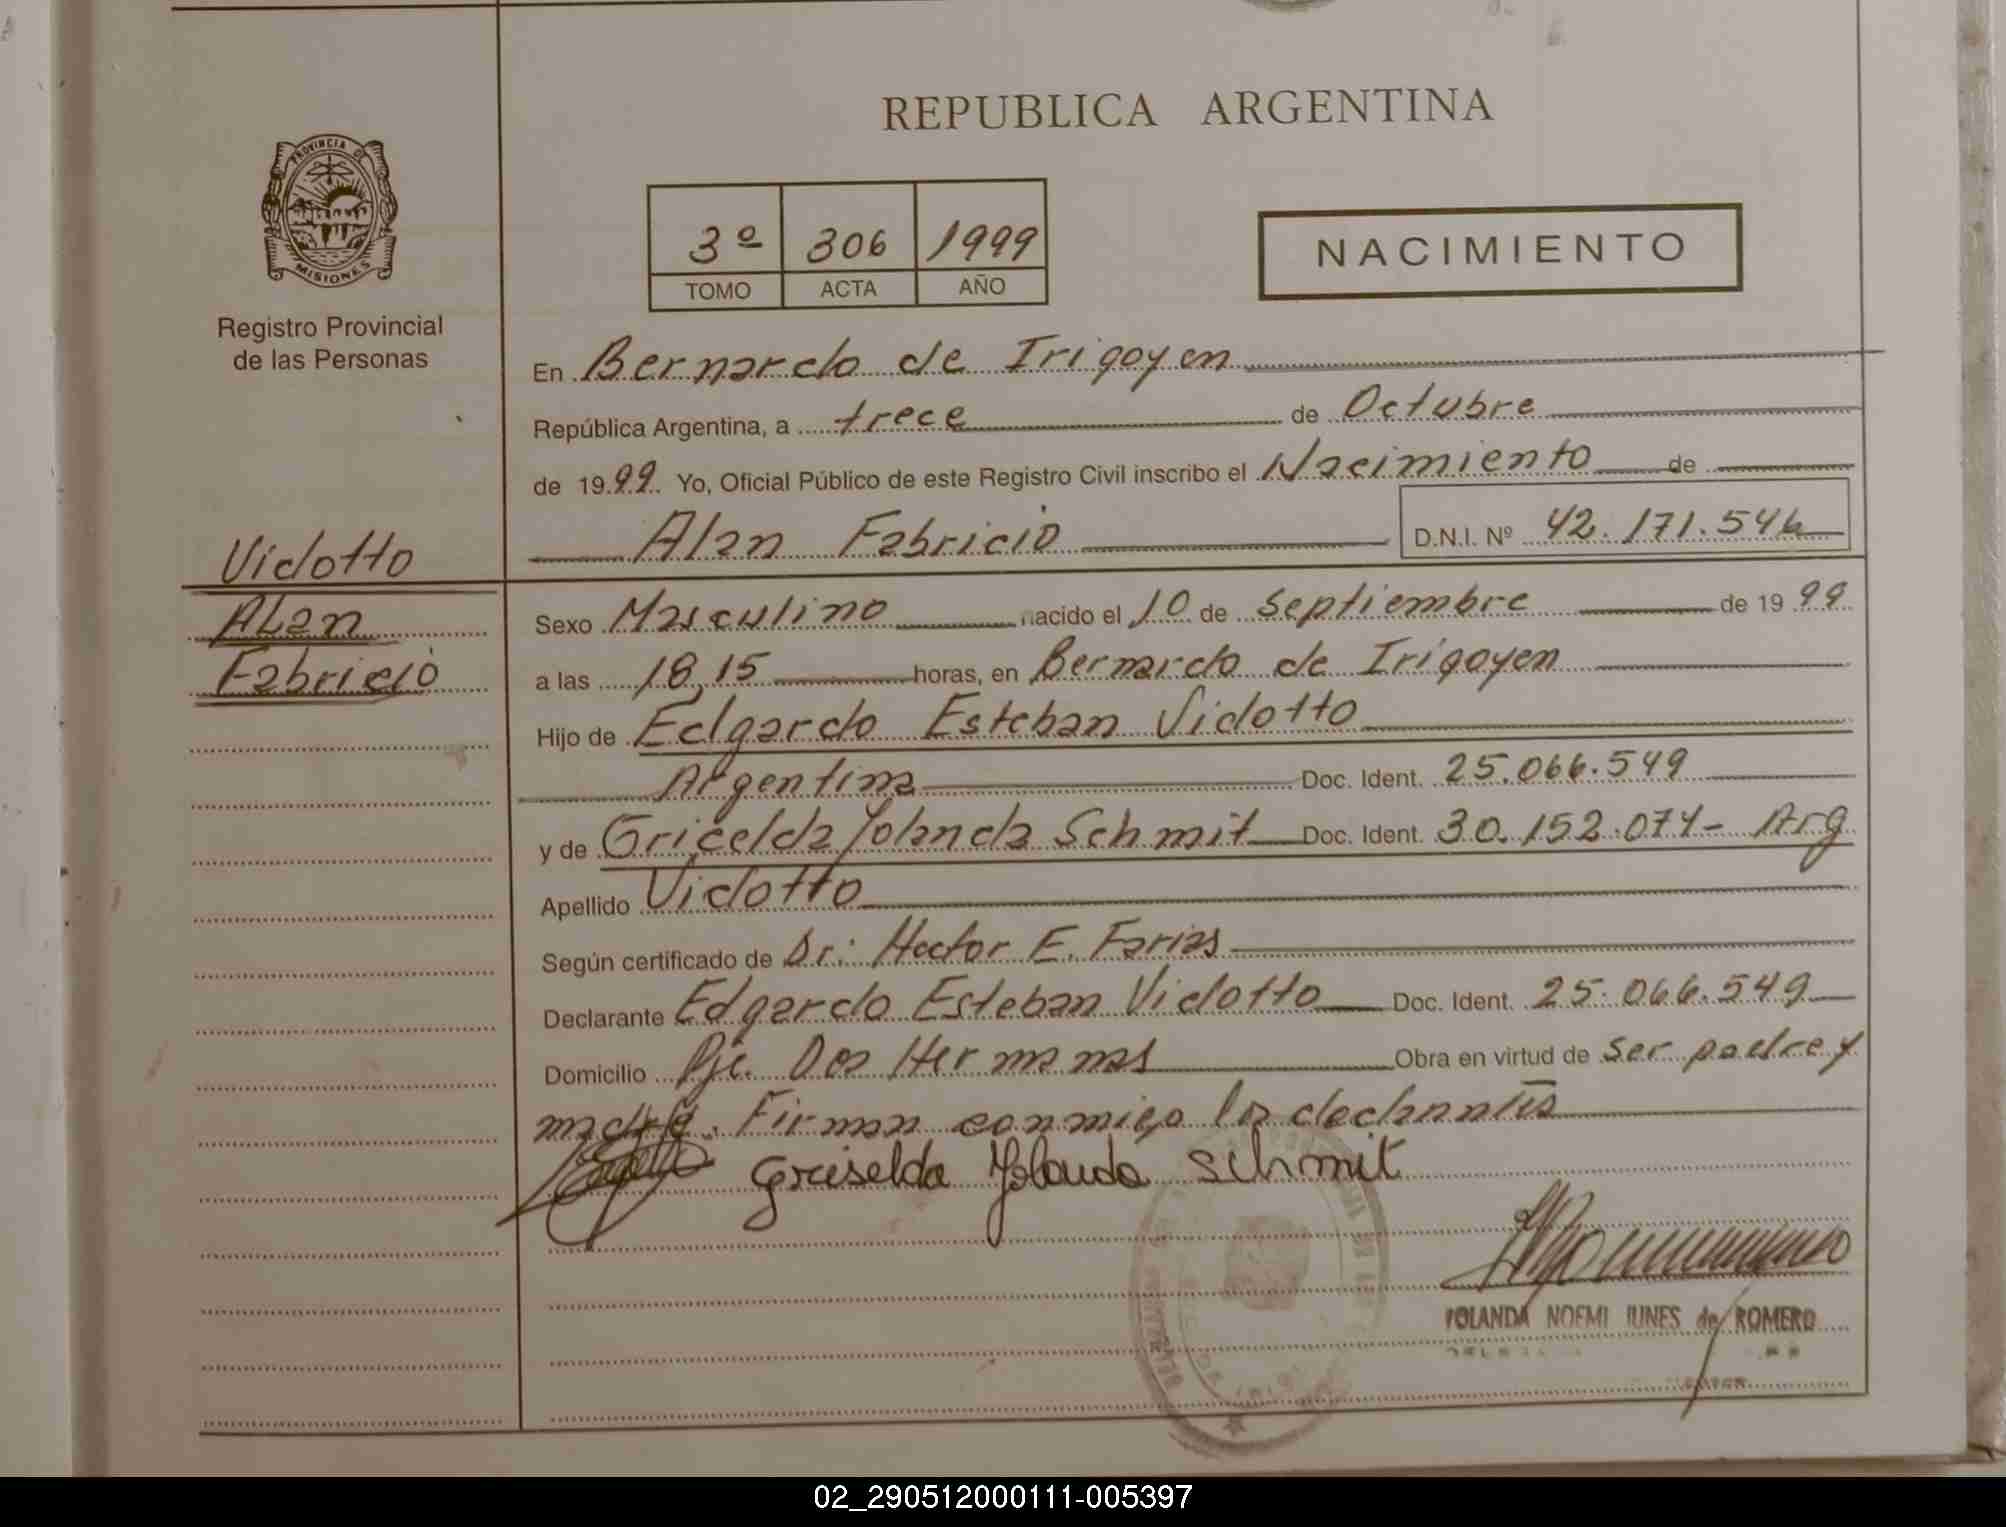 REPUBLICA ARGENTINA
PROVINCIA DE
MISIONES
Registro Provincial
de las Personas
3º 306 1999
TOMO ACTA AÑO
NACIMIENTO
En Bernardo de Irigoyen
República Argentina, a trece de Octubre
de 1999. Yo, Oficial Público de este Registro Civil inscribo el Nacimiento de
Alan Fabricio D.N.I. Nº 42.171.546
Vidotto
Alan
Fabricio
Sexo Masculino nacido el 10 de Septiembre de 1999
a las 18,15 horas, en Bernardo de Irigoyen
Hijo de Edgardo Esteban Vidotto
Argentina Doc. Ident. 25.066.549
y de Gricelda Yolanda Schmit Doc. Ident. 30.152.074- Arg
Apellido Vidotto
Según certificado de Dr: Hector E. Farias
Declarante Edgardo Esteban Vidotto Doc. Ident. 25.066.549
Domicilio Pje. Dos Hermanas Obra en virtud de ser padre y
madre. Firman conmigo los declarantes
Griselda Yolanda Schmit
YOLANDA NOEMI IUNES de ROMERO
02_290512000111-005397